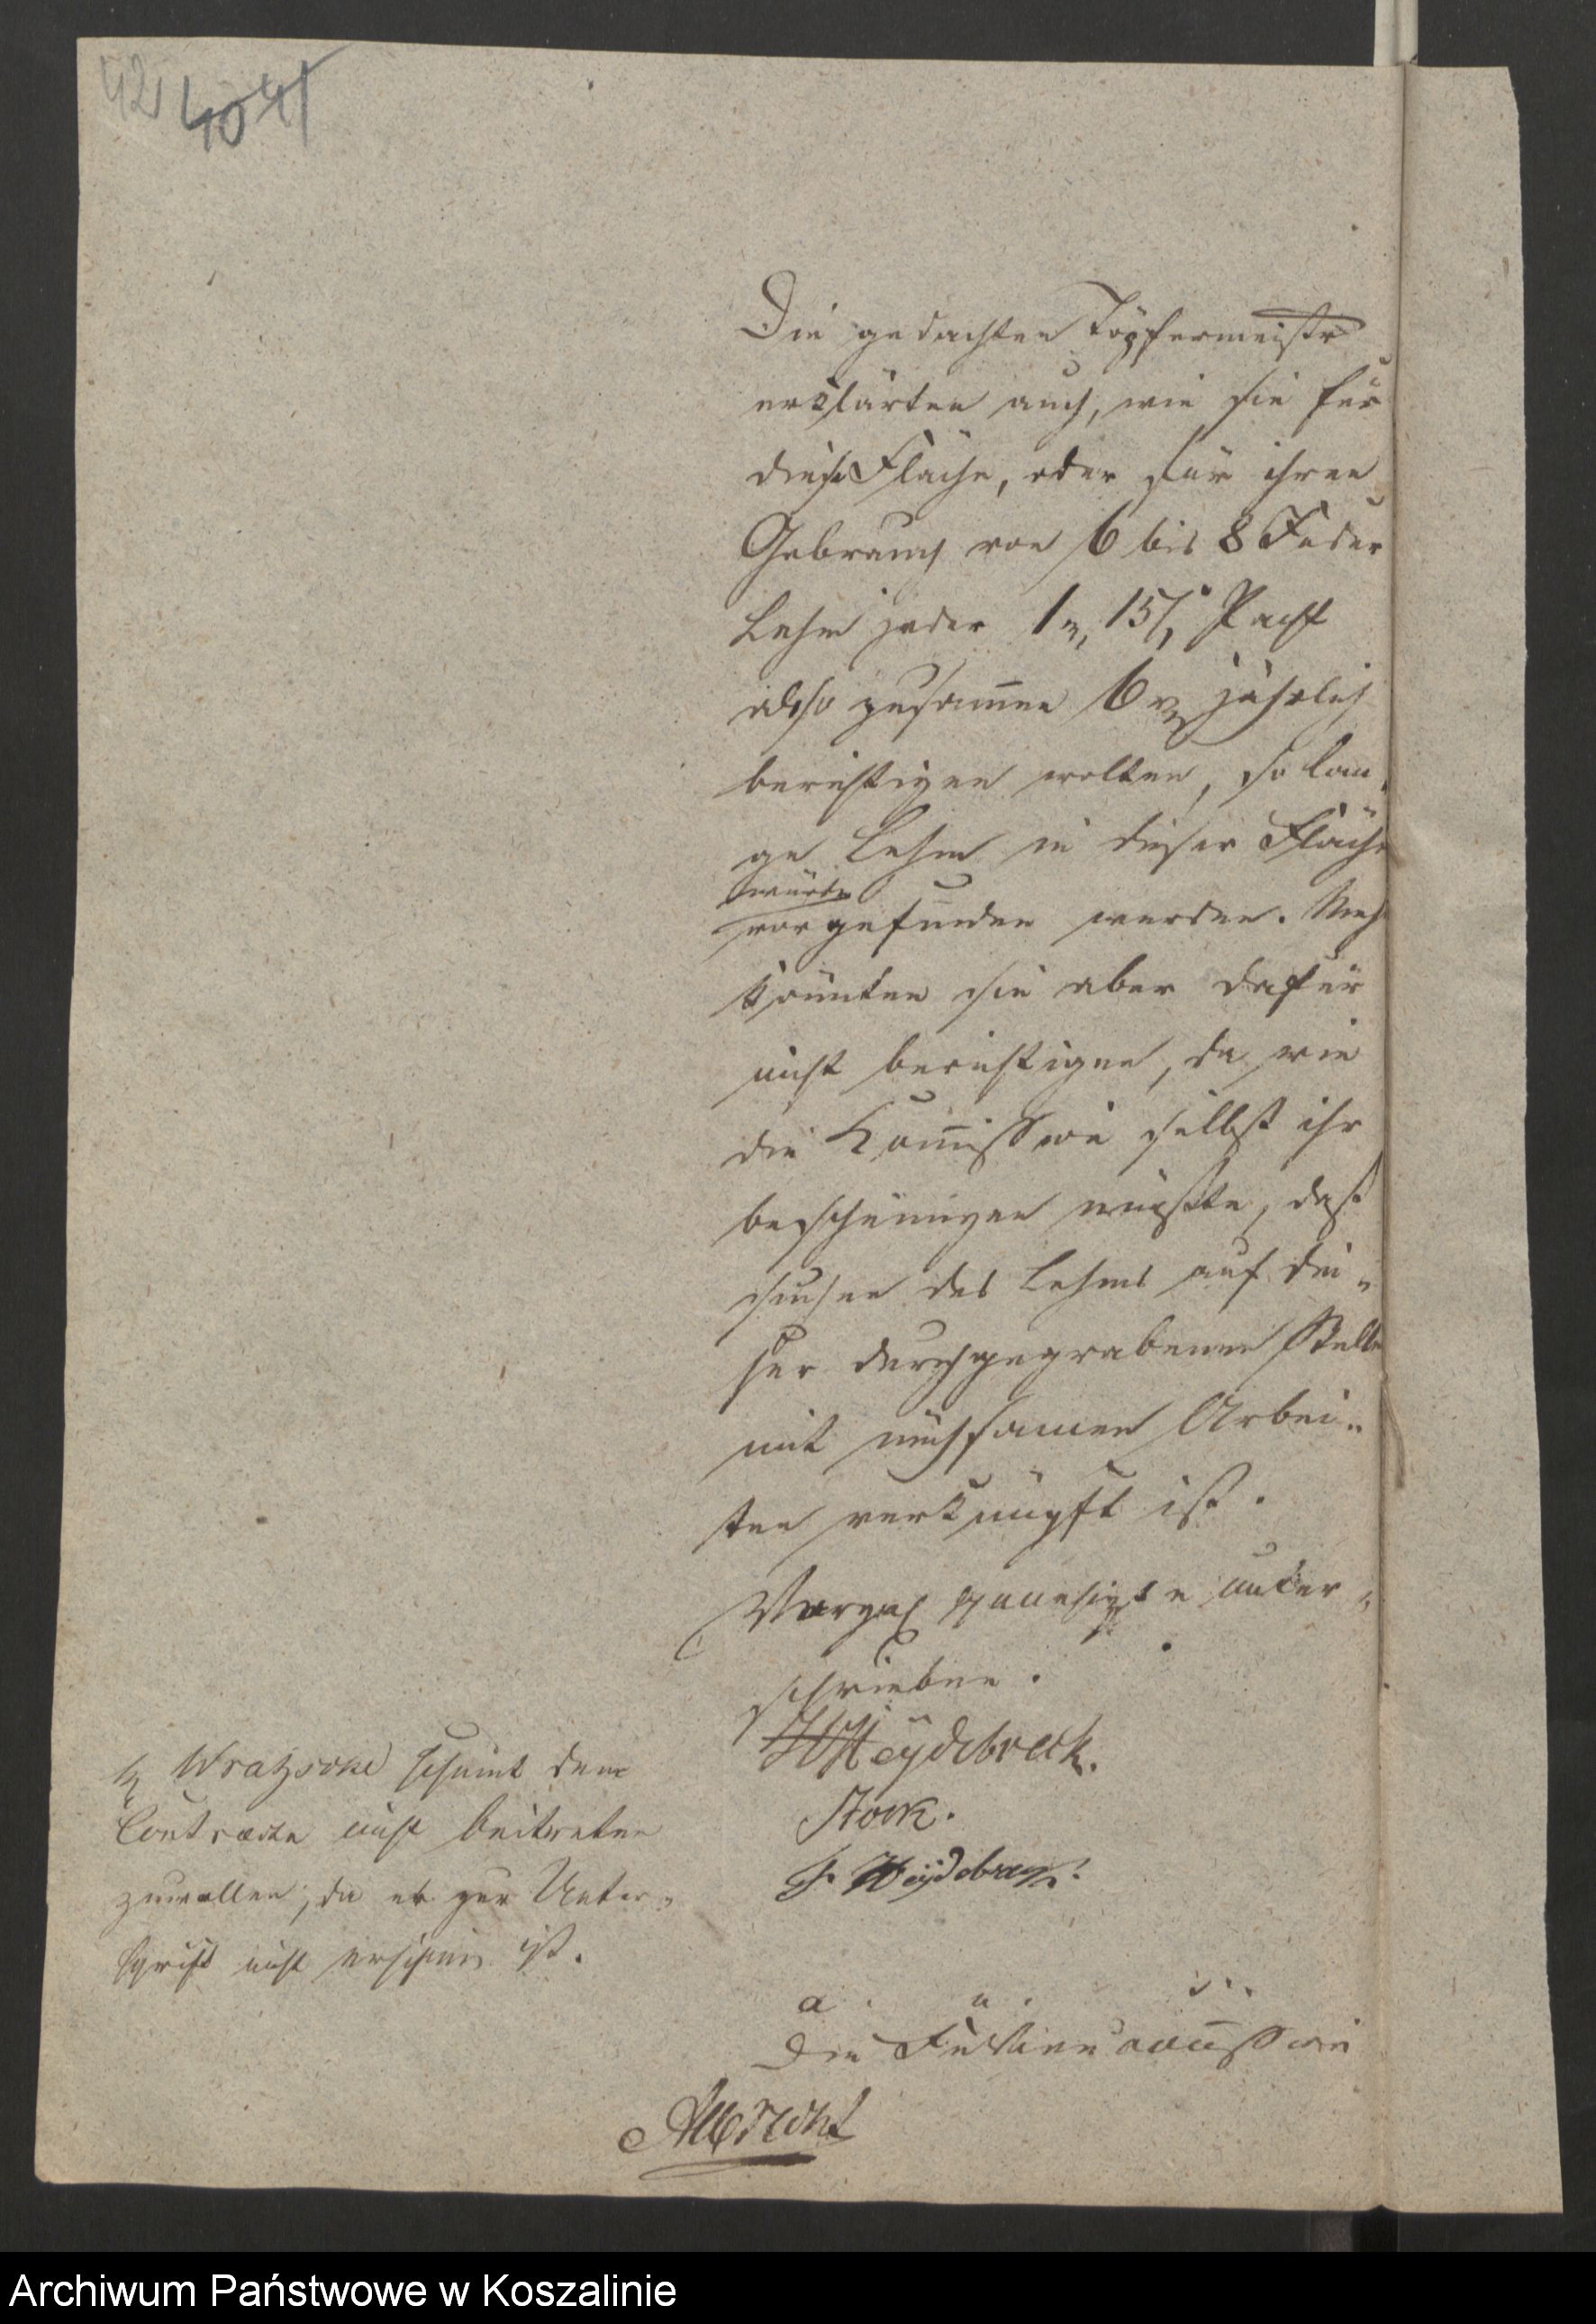 42 40 41
Die gedachten Töpfermeister
erklärten auch, wie sie für
diese Fläche, oder für ihren
Gebrauch von 6 bis 8 Fuder
Lehm jeder 1 15 Pacht
also zusamen 6 jährlich
berichtigen wollten, so lan-
ge Lehm in dieser Fläche
würde
vorgefunden werden. Mehr
könnten sie aber dafür
nicht berichtigen, da wie
die Komission selbst ihr
bescheinigen müsste, daß
des Lehms auf die-
ser durchgegrabenen Stelle
mit mühsamen Arbei-
ten verknüpft ist.
Vorgel. genehigt unter-
schrieben.
Heydebreck.
Stock.
F. Heydebreck.
Wratzcke scheint dem
Contracte nicht beitreten
zuwollen, da er zur Unter-
schrift nicht erschienen ist.
a. u. s.
Die
Albrecht
Archiwum Państwowe w Koszalinie